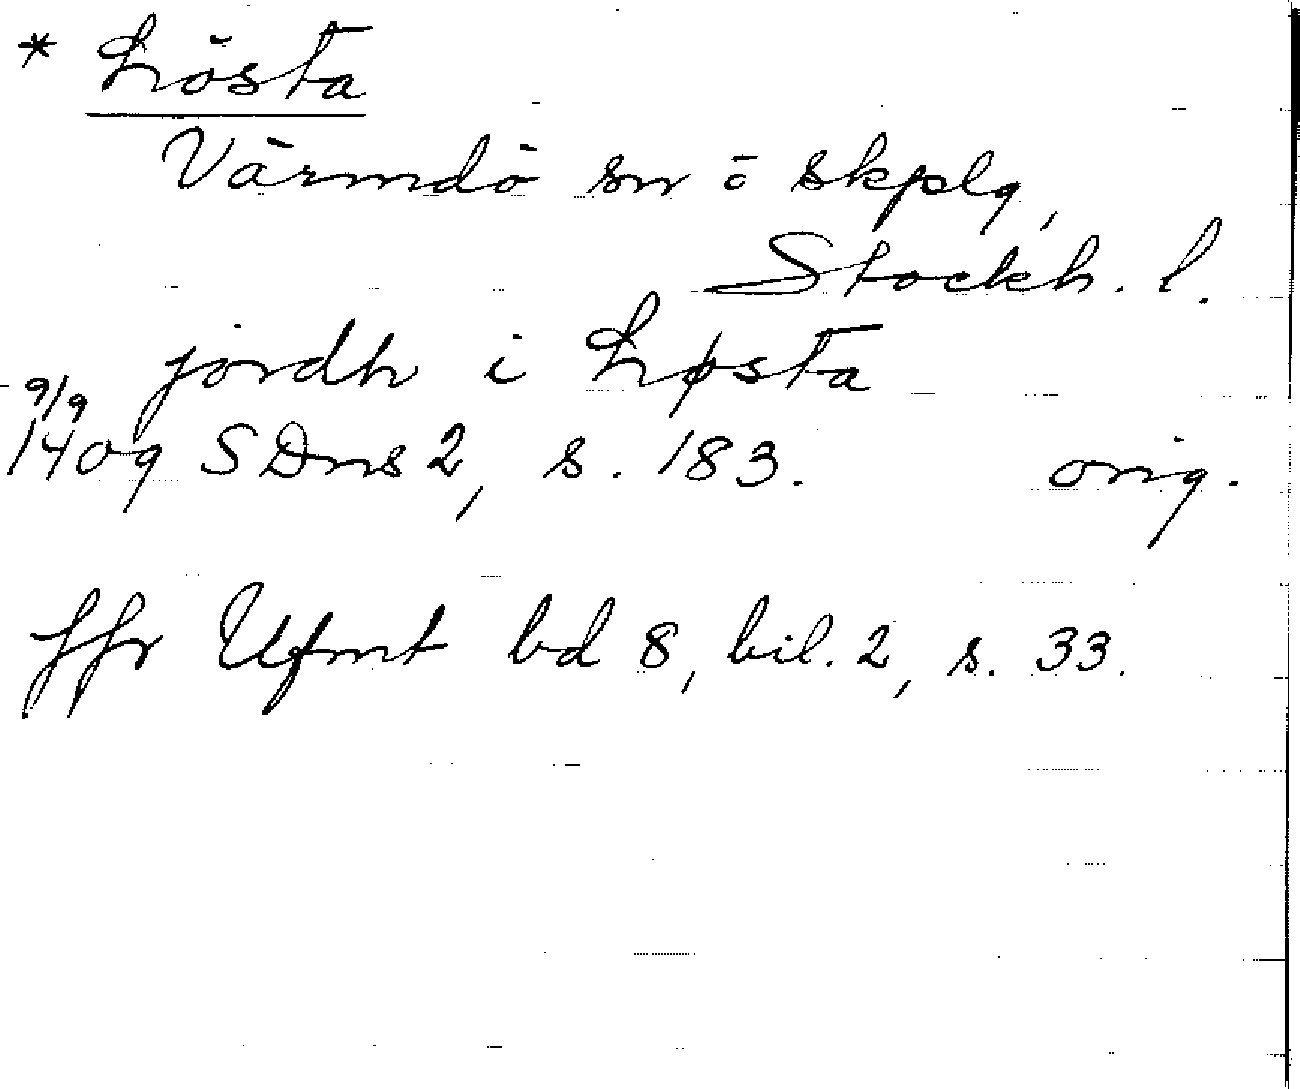 * Lösta
Värmdö sn o skplg,
Stockh. l.
jordh i Løsta
9/9
1409 SDns 2, s. 183. orig.
Jfr Ufmt bd 8, bil. 2, s. 33.